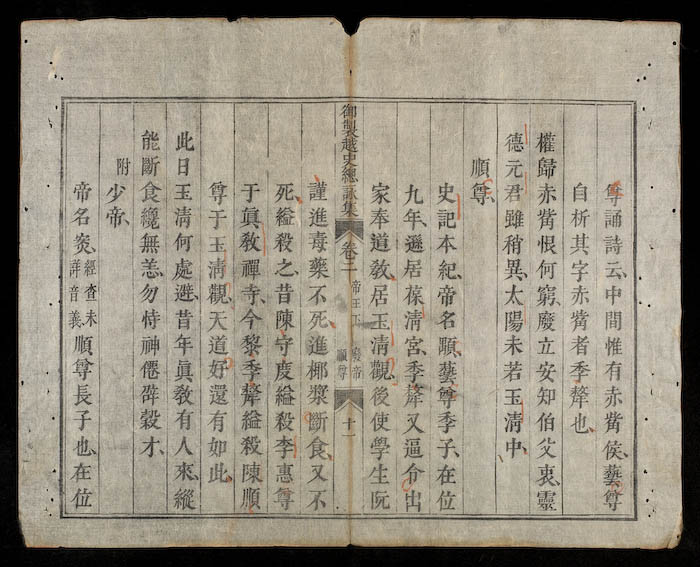 尊誦詩云、中間惟有赤觜侯、藝尊
自析其字赤觜者季犛也、
權歸赤觜恨何窮、廢立安知伯父衷、靈
德元君雖稍異、太陽未若玉清中、
順尊、
史記本紀、帝名顒、藝尊季子、在位
九年、遜居葆清宮、季犛又逼令出
家奉道教、居玉清觀、後使學生阮
御製越史總詠集
卷二
帝王下
廢帝
順尊
十一
謹進毒藥、不死、進椰漿、斷食、又不
死、縊殺之、昔陳守度縊殺李惠尊
于眞教禪寺、今黎季犛縊殺陳順
尊于玉清觀、天道好還有如此、
此日玉清何處避、昔年眞教有人來、縱
能斷食纔無恙、勿恃神僊辟穀才、
附少帝、
帝名 經查未詳音義 順尊長子也、在位